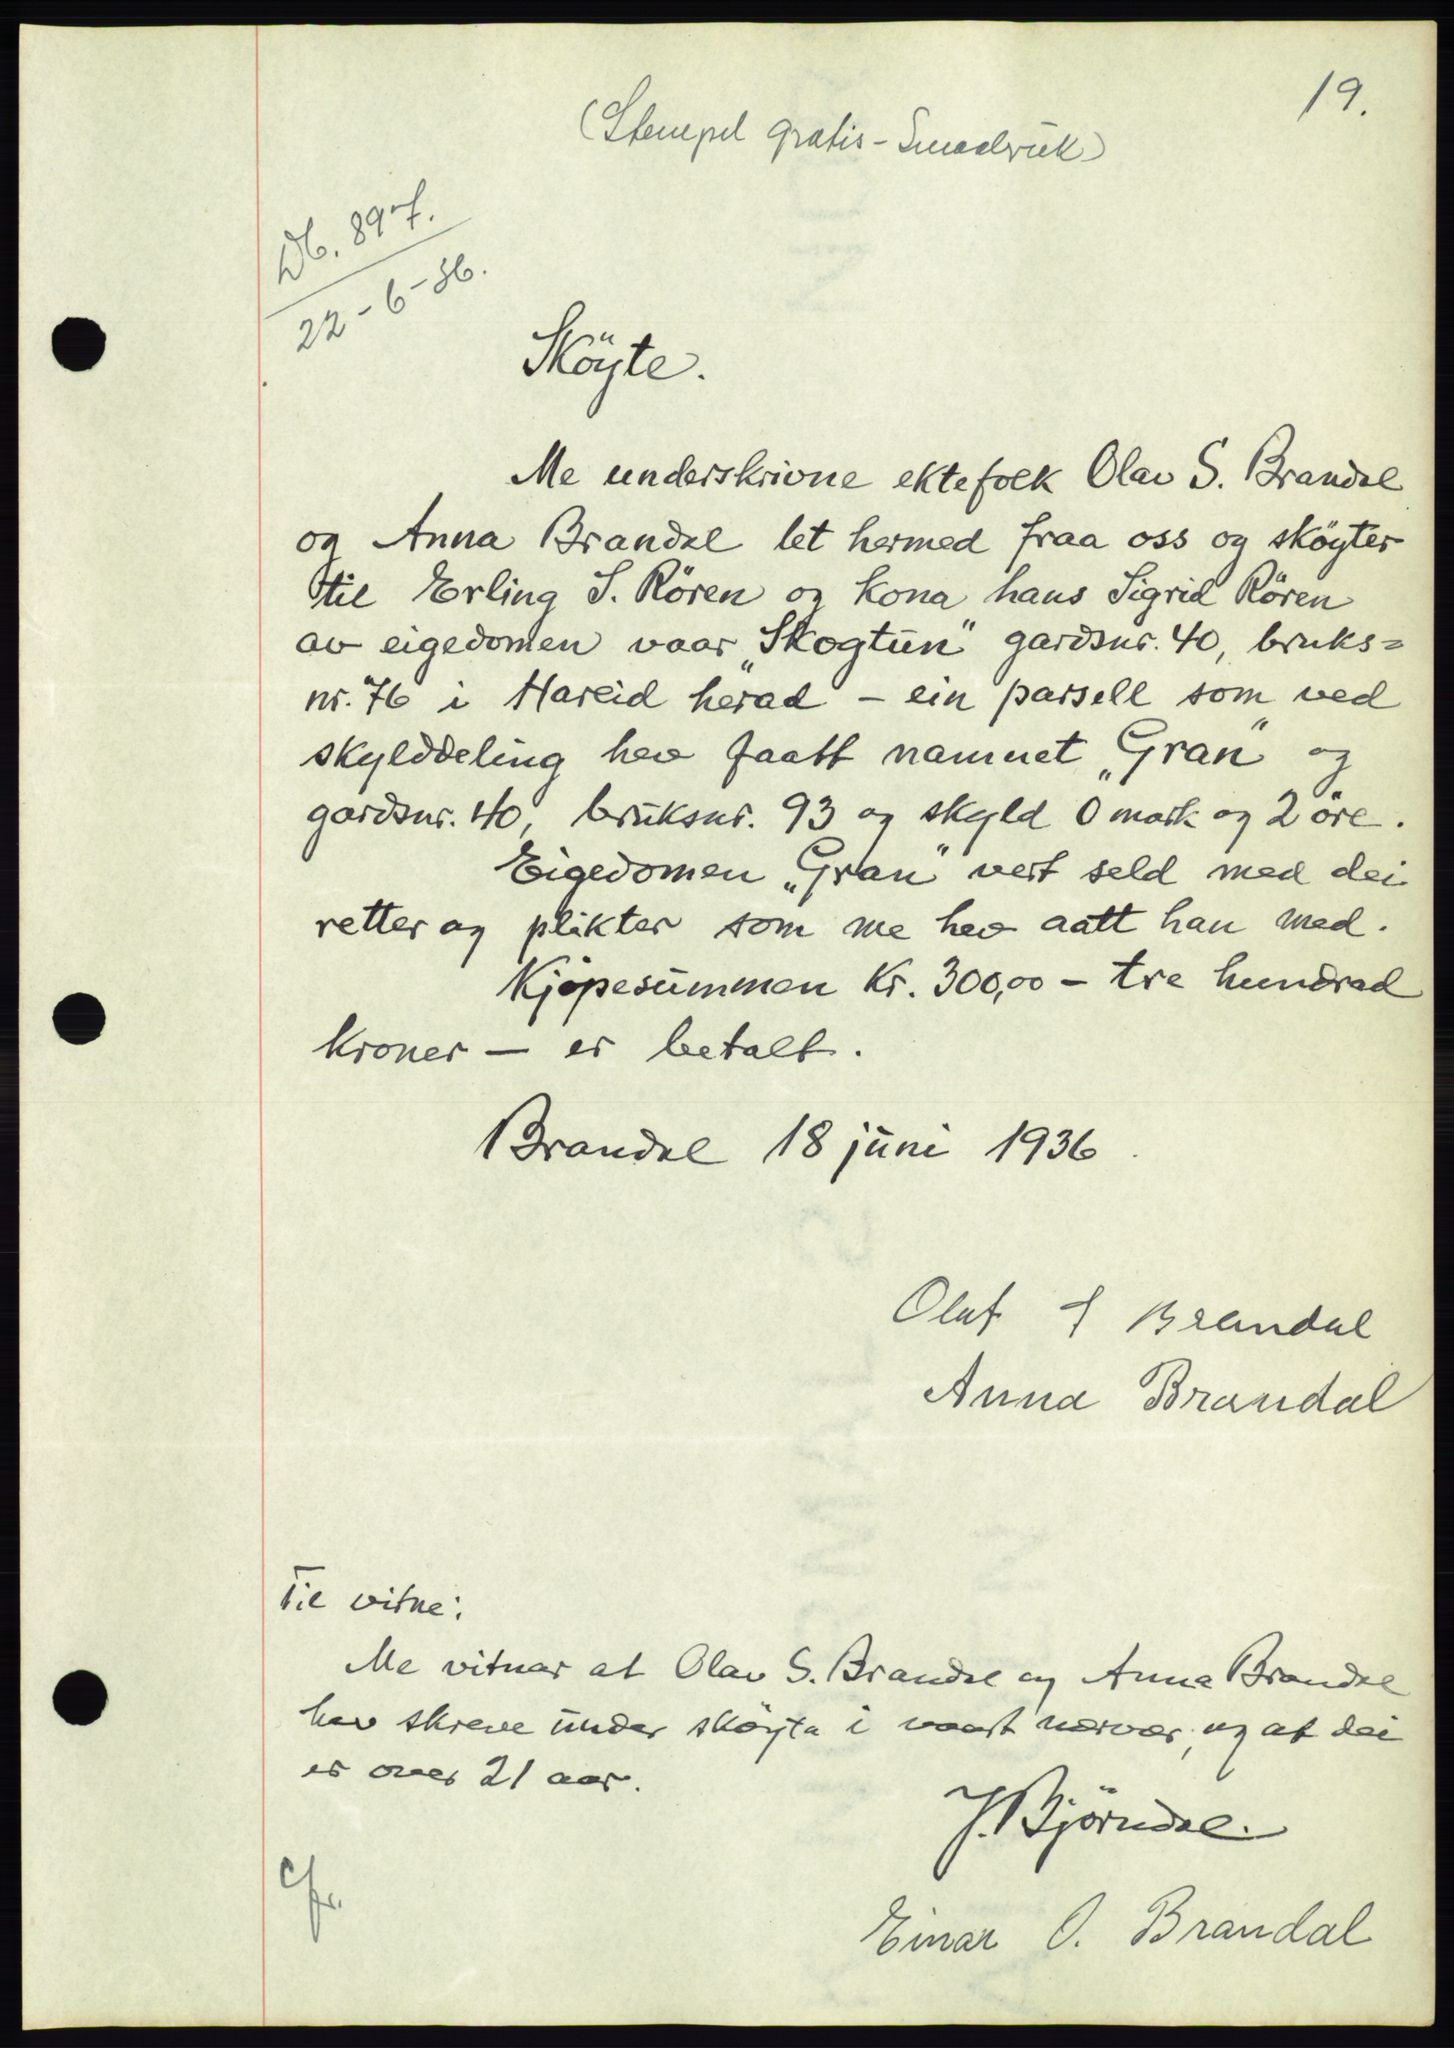 19.
(Stempel gratis - Smaabruk)
Db. 897.
22-6-36.
Sköyte.
Me underskrivne ektefolk Olav S. Brandal
og Anna Brandal let hermed fraa oss og sköyter
til Erling S. Rören og kona hans Sigrid Rören
av eigedomen vaar „Skogtun" gardsnr. 40, bruks=
nr. 76 i Hareid herad - ein parsell som ved
skylddeling hev faatt namnet „Gran" og
gardsnr. 40, bruksnr. 93 og skyld 0 mark og 2 öre.
Eigedomen „Gran" vert seld med dei
retter og plikter som me hev aatt han med.
Kjöpesummen Kr. 300,00 - tre hundrad
kroner - er betalt.
Brandal 18 juni 1936
Olaf S Brandal
Anna Brandal
Til vitne:
Me vitnar at Olav S. Brandal og Anna Brandal
hev skreve under sköyta i vaart nærvær, og at dei
er over 21 aar.
J. Björndal.
Einar O. Brandal